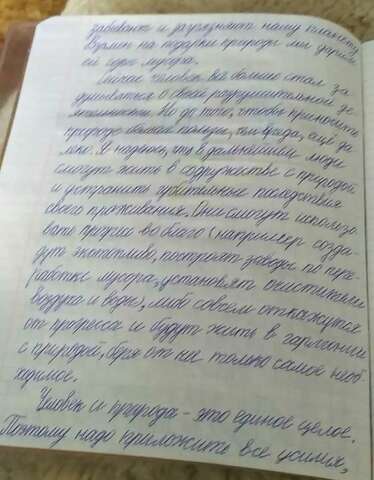 забивают и загрязняют нашу планету.
Взамен на подарки природы мы дарим
ей горы мусора.
Сейчас человек всё больше стал за
думываться о своей разрушительной де
ятельности. Но до того, чтобы приносить
природе больше пользы, чем вреда, ещё да
леко. Я надеюсь, что в дальнейшем люди
смогут жить в содружестве с природой
и устранить губительные последствия
своего проживания. Они смогут использо
вать прогресс во благо (например созда
дут экотопливо, построят заводы по пере
работке мусора, установят очистители
воздуха и воды, либо совсем откажутся
от прогресса и будут жить в гармонии
с природой, беря от нее только самое необ
ходимое.
Человек и природа - это единое целое.
Поэтому надо приложить все усилия,